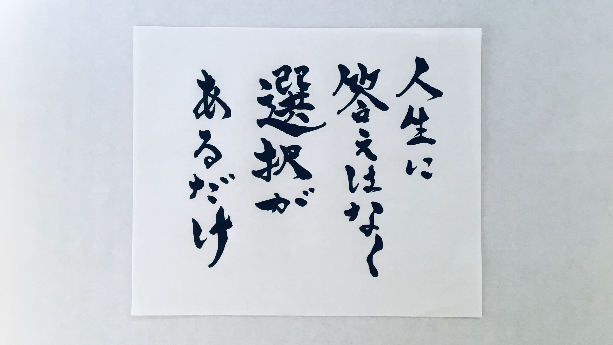 人生に
答えはなく
選択が
あるだけ